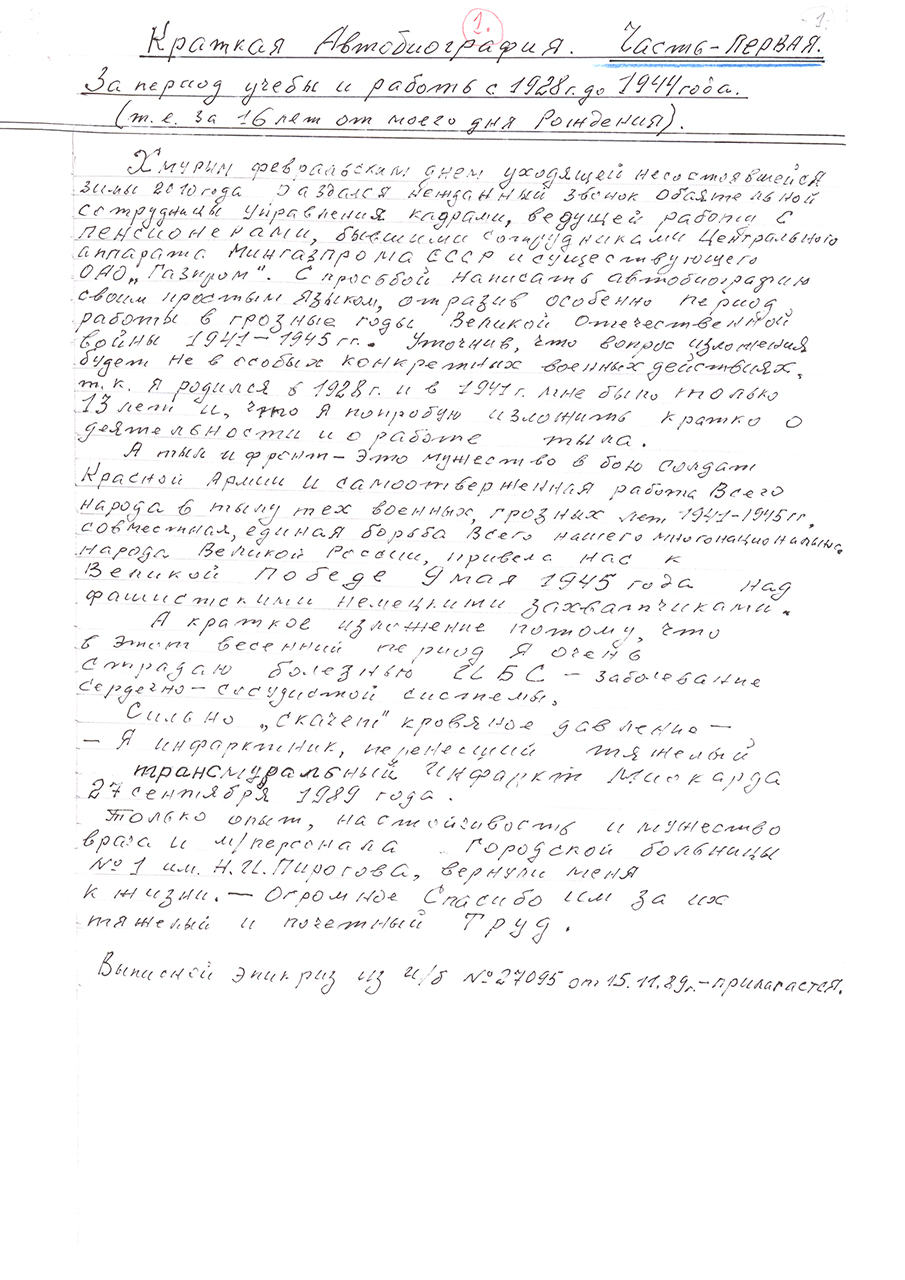 1.
1.
Краткая Автобиография. Часть-Первая.
За период учебы и работь с 1928г. до 1944 года.
(т.е. за 16 лет от моего дня Рождения).
Хмурым февральским днем уходящей несостоявшейся
зимы 2010 года раздался нежданный звонок обаятельной
сотрудницы Управления кадрами, ведущей работу с
пенсионерами, бывшими сотрудниками Центрального
аппарата Мингазпрома СССР и существующего
ОАО „Газпром". С просьбой написать автобиографию
своим простым языком, отразив особенно период
работы в грозные годы Великой Отечественной
войны 1941-1945 гг. Уточнив, что вопрос изложения
будет не в особых конкретных военных действиях,
т.к. я родился в 1928г. и в 1941г. мне было только
13 лет и, что я попробую изложить кратко о
деятельности и о работе тыла.
А тыл и фронт - это мужество в бою солдат
Красной Армии и самоотверженная работа Всего
народа в тылу тех военных, грозных лет 1941-1945 гг,
совместная, единая борьба Всего нашего многонационального
народа Великой России, привела нас к
Великой Победе 9 мая 1945 года над
фашистскими немецкими захватчиками.
А краткое изложение потому, что
в этот весенний период я очень
страдаю болезнью ИБС - заболевание
сердечно-сосудистой системы.
Сильно „скачет" кровяное давление -
- Я инфарктник, перенесший тяжелый
трансмуральный Инфаркт Миокарда
27 сентября 1989 года.
Только опыт, настойчивость и мужество
врача и м/персонала Городской больницы
№1 им. Н.И.Пирогова, вернули меня
к жизни. - Огромное Спасибо им за их
тяжелый и почетный Труд.
Выписной эпикриз из и/б №27095 от 15.11.89г.-прилагается.